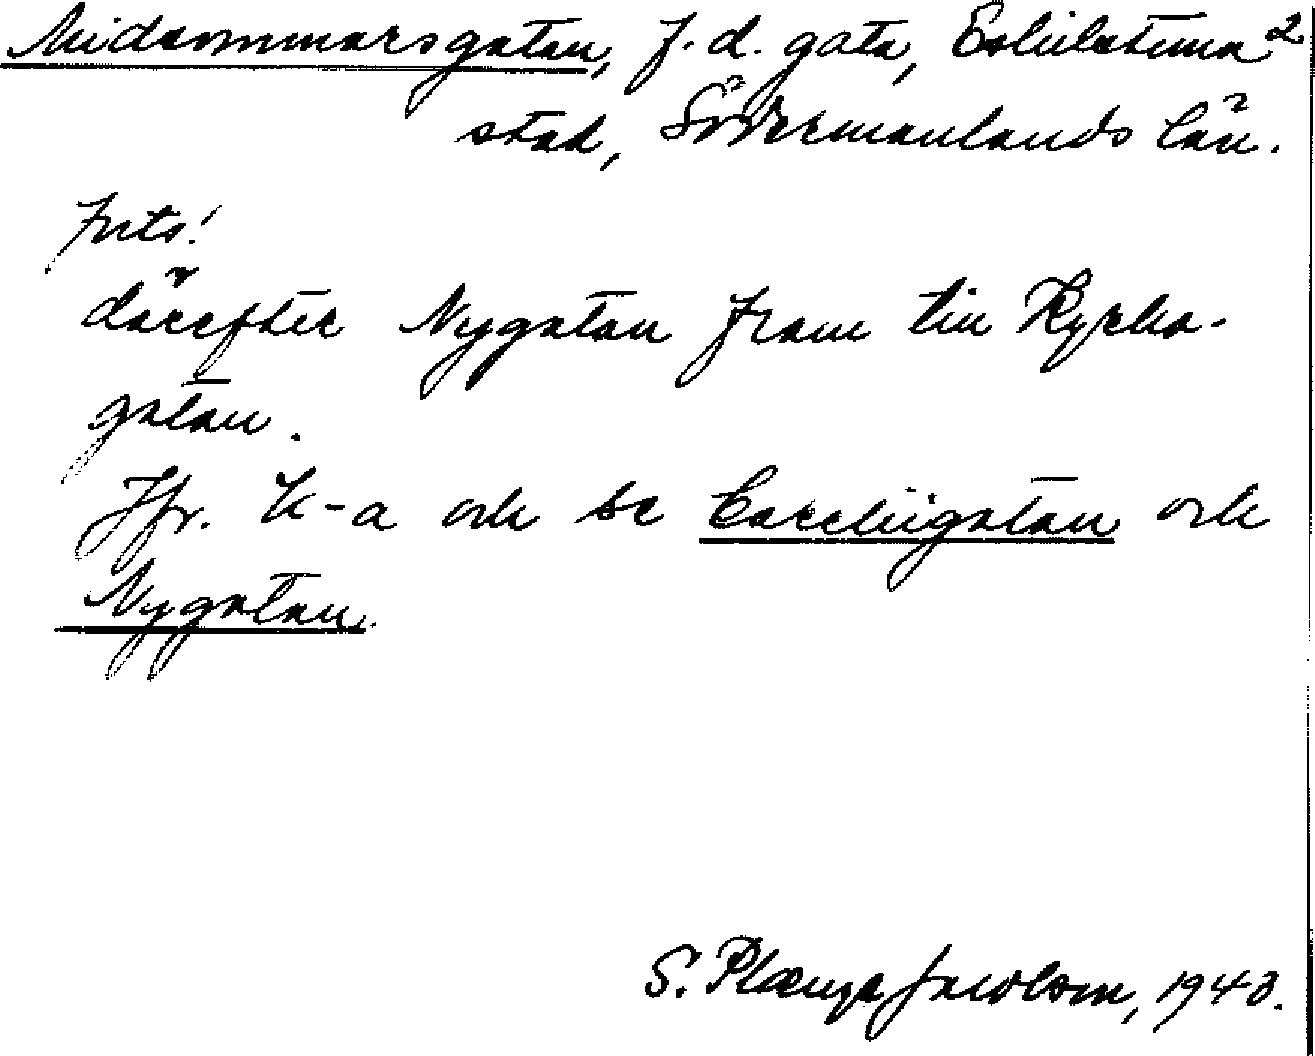 Midsommarsgatan, f.d. gata, Eskilstuna 2
stad, Södermanlands län.
Forts!
därefter Nygatan fram till Kyrko-
gatan.
Jfr. K-a och se Careliigatan och
Nygatan.
S. Plænge Jacobson, 1943.